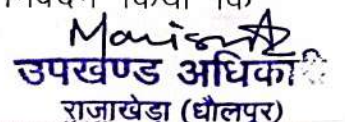 उपखण्ड अधिकारी
राजाखेडा (धौलपुर)